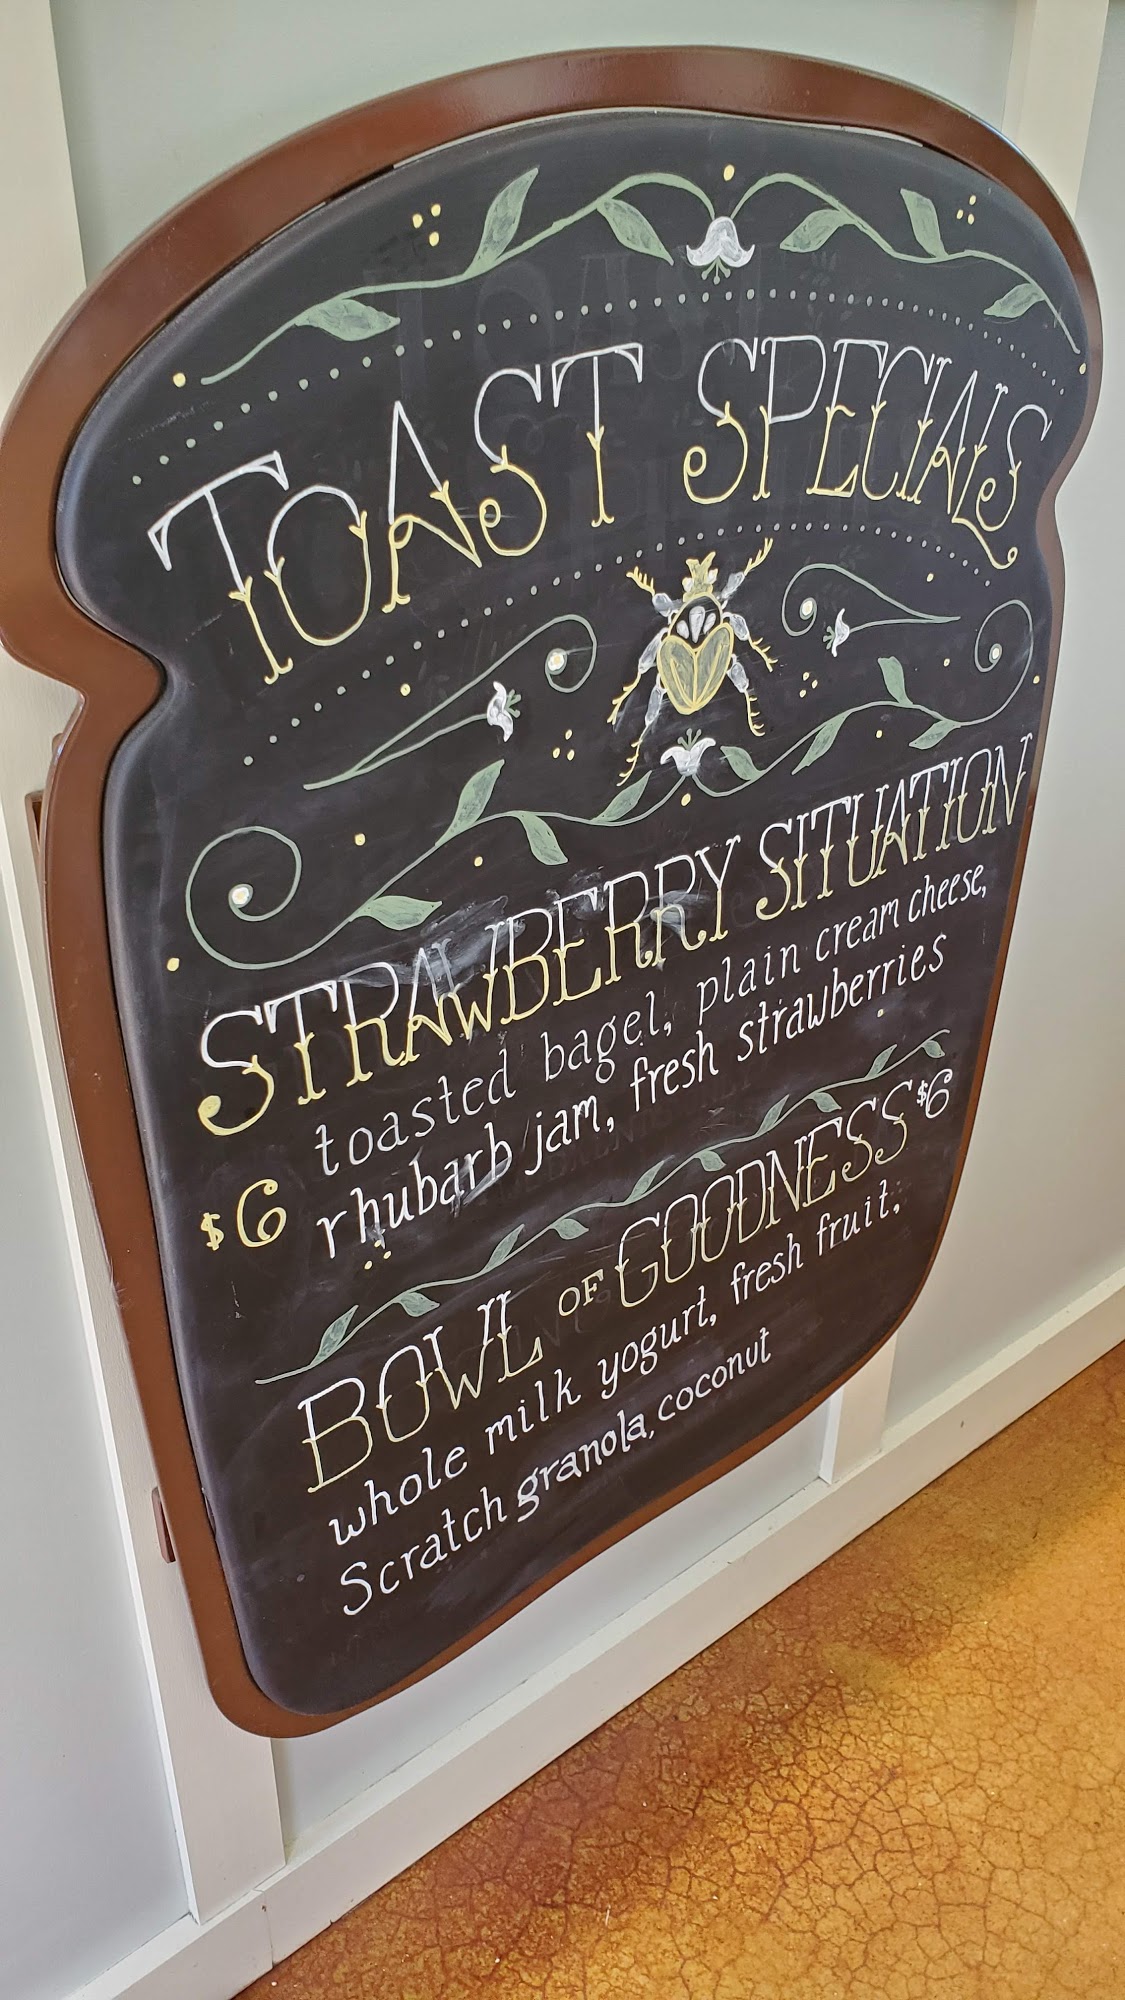 TOAST SPECIALS
STRAWBERRY SITUATION
toasted bagel, plain cream cheese,
$6 rhubarb jam, fresh strawberries
BOWL OF GOODNESS $6
whole milk yogurt, fresh fruit,
Scratch granola, coconut